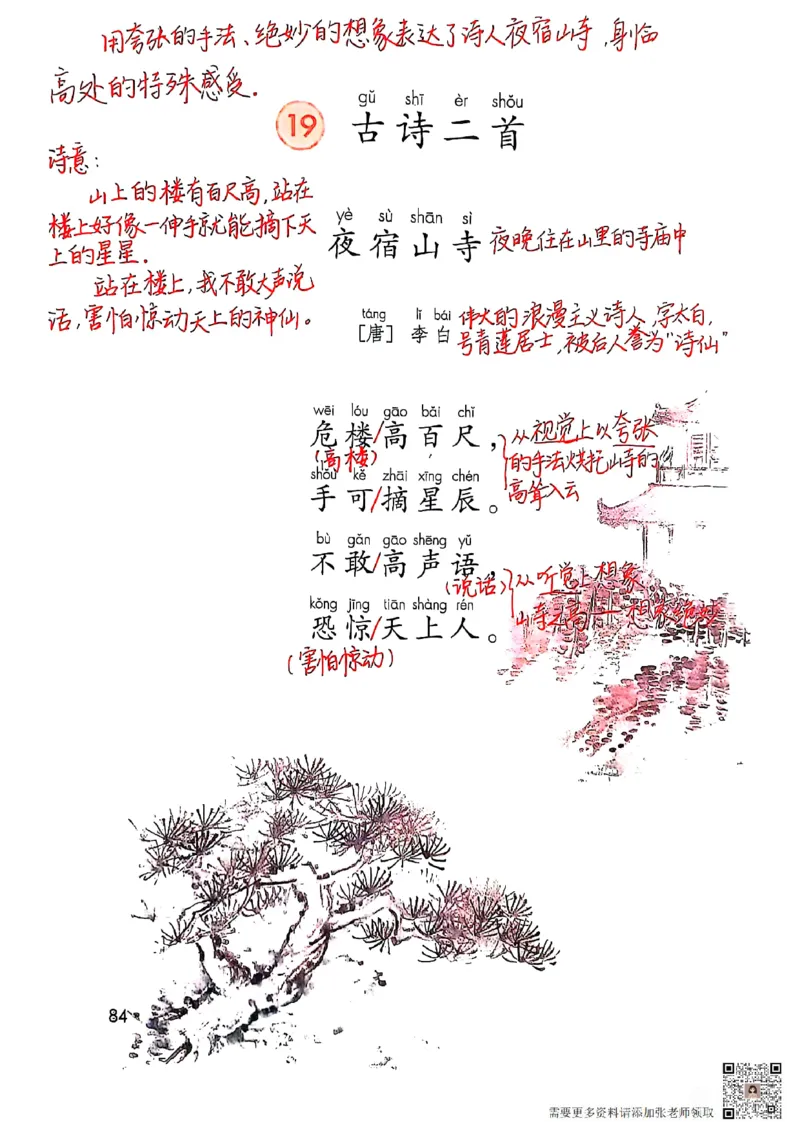 用夸张的手法、绝妙的想象表达了诗人夜宿山寺,身临
高处的特殊感受.
gǔ shī èr shǒu
19 古诗二首
诗意:
山上的楼有百尺高,站在
楼上好像一伸手就能摘下天
上的星星.
站在楼上,我不敢大声说
话,害怕惊动天上的神仙。
yè sù shān sì
夜宿山寺 夜晚住在山里的寺庙中
táng lǐ bái
[唐] 李白 伟大的浪漫主义诗人,字太白,
号青莲居士,被后人誉为"诗仙"
wēi lóu gāo bǎi chǐ
危楼/高百尺,
(高楼)
shǒu kě zhāi xīng chén
手可/摘星辰。
从视觉上以夸张
的手法烘托山寺的
高耸入云
bù gǎn gāo shēng yǔ
不敢/高声语,
(说话)
kǒng jīng tiān shàng rén
恐惊/天上人。
(害怕惊动)
从听觉上想象
山寺之高——想象绝妙
84
需要更多资料请添加张老师领取